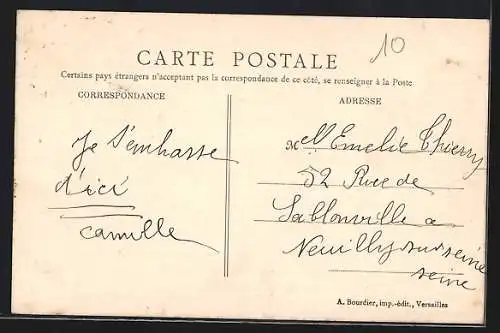 10
CARTE POSTALE
Certains pays étrangers n'acceptant pas la correspondance de ce côté, se renseigner à la Poste
CORRESPONDANCE
ADRESSE
Je t'embrasse
d'ici
Camille
Mell Emelie Thierry
52 Rue de
Sablonville a
Neuilly sur seine
seine
A. Bourdier, imp.-édit., Versailles